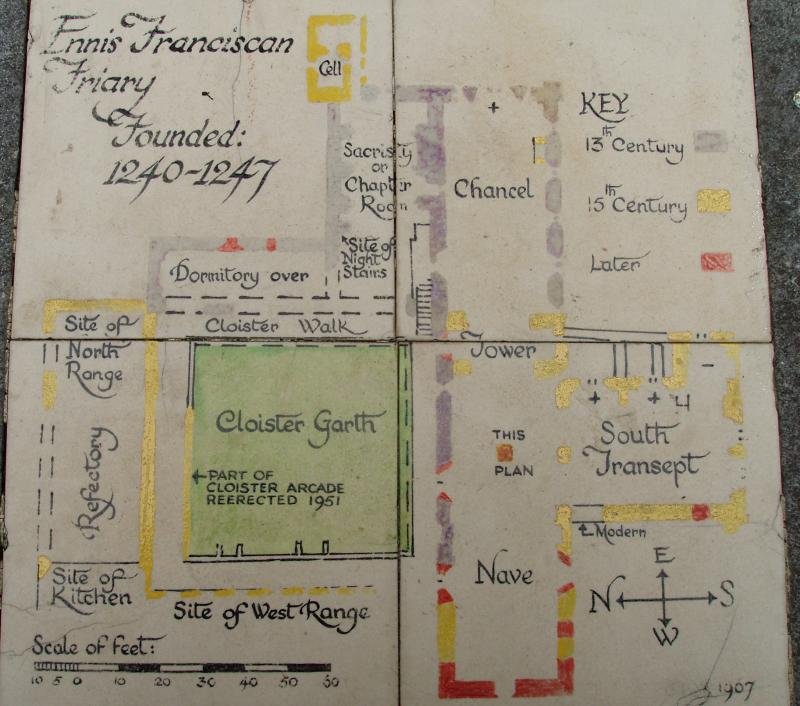 Ennis Franciscan
Friary
Founded:
1240-1247
Cell
Sacristy
or
Chapter
Room
Chancel
KEY
13th Century
15th Century
Later
Dormitory over
Site of
Night
Stairs
Site of
North
Range
Cloister Walk
Tower
Cloister Garth
PART OF
CLOISTER ARCADE
REERECTED 1951
Refectory
THIS
PLAN
South
Transept
Modern
Site of
Kitchen
Nave
Site of West Range
E
N
S
W
Scale of feet:
10 5 0 10 20 30 40 50